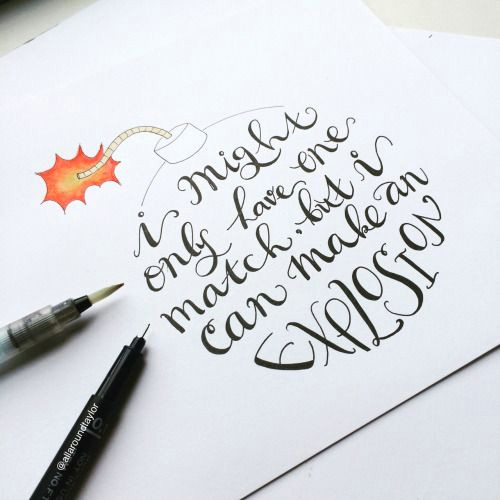 i might
only have one
match, but i
can make an
EXPLOSION
@allaroundtaylor